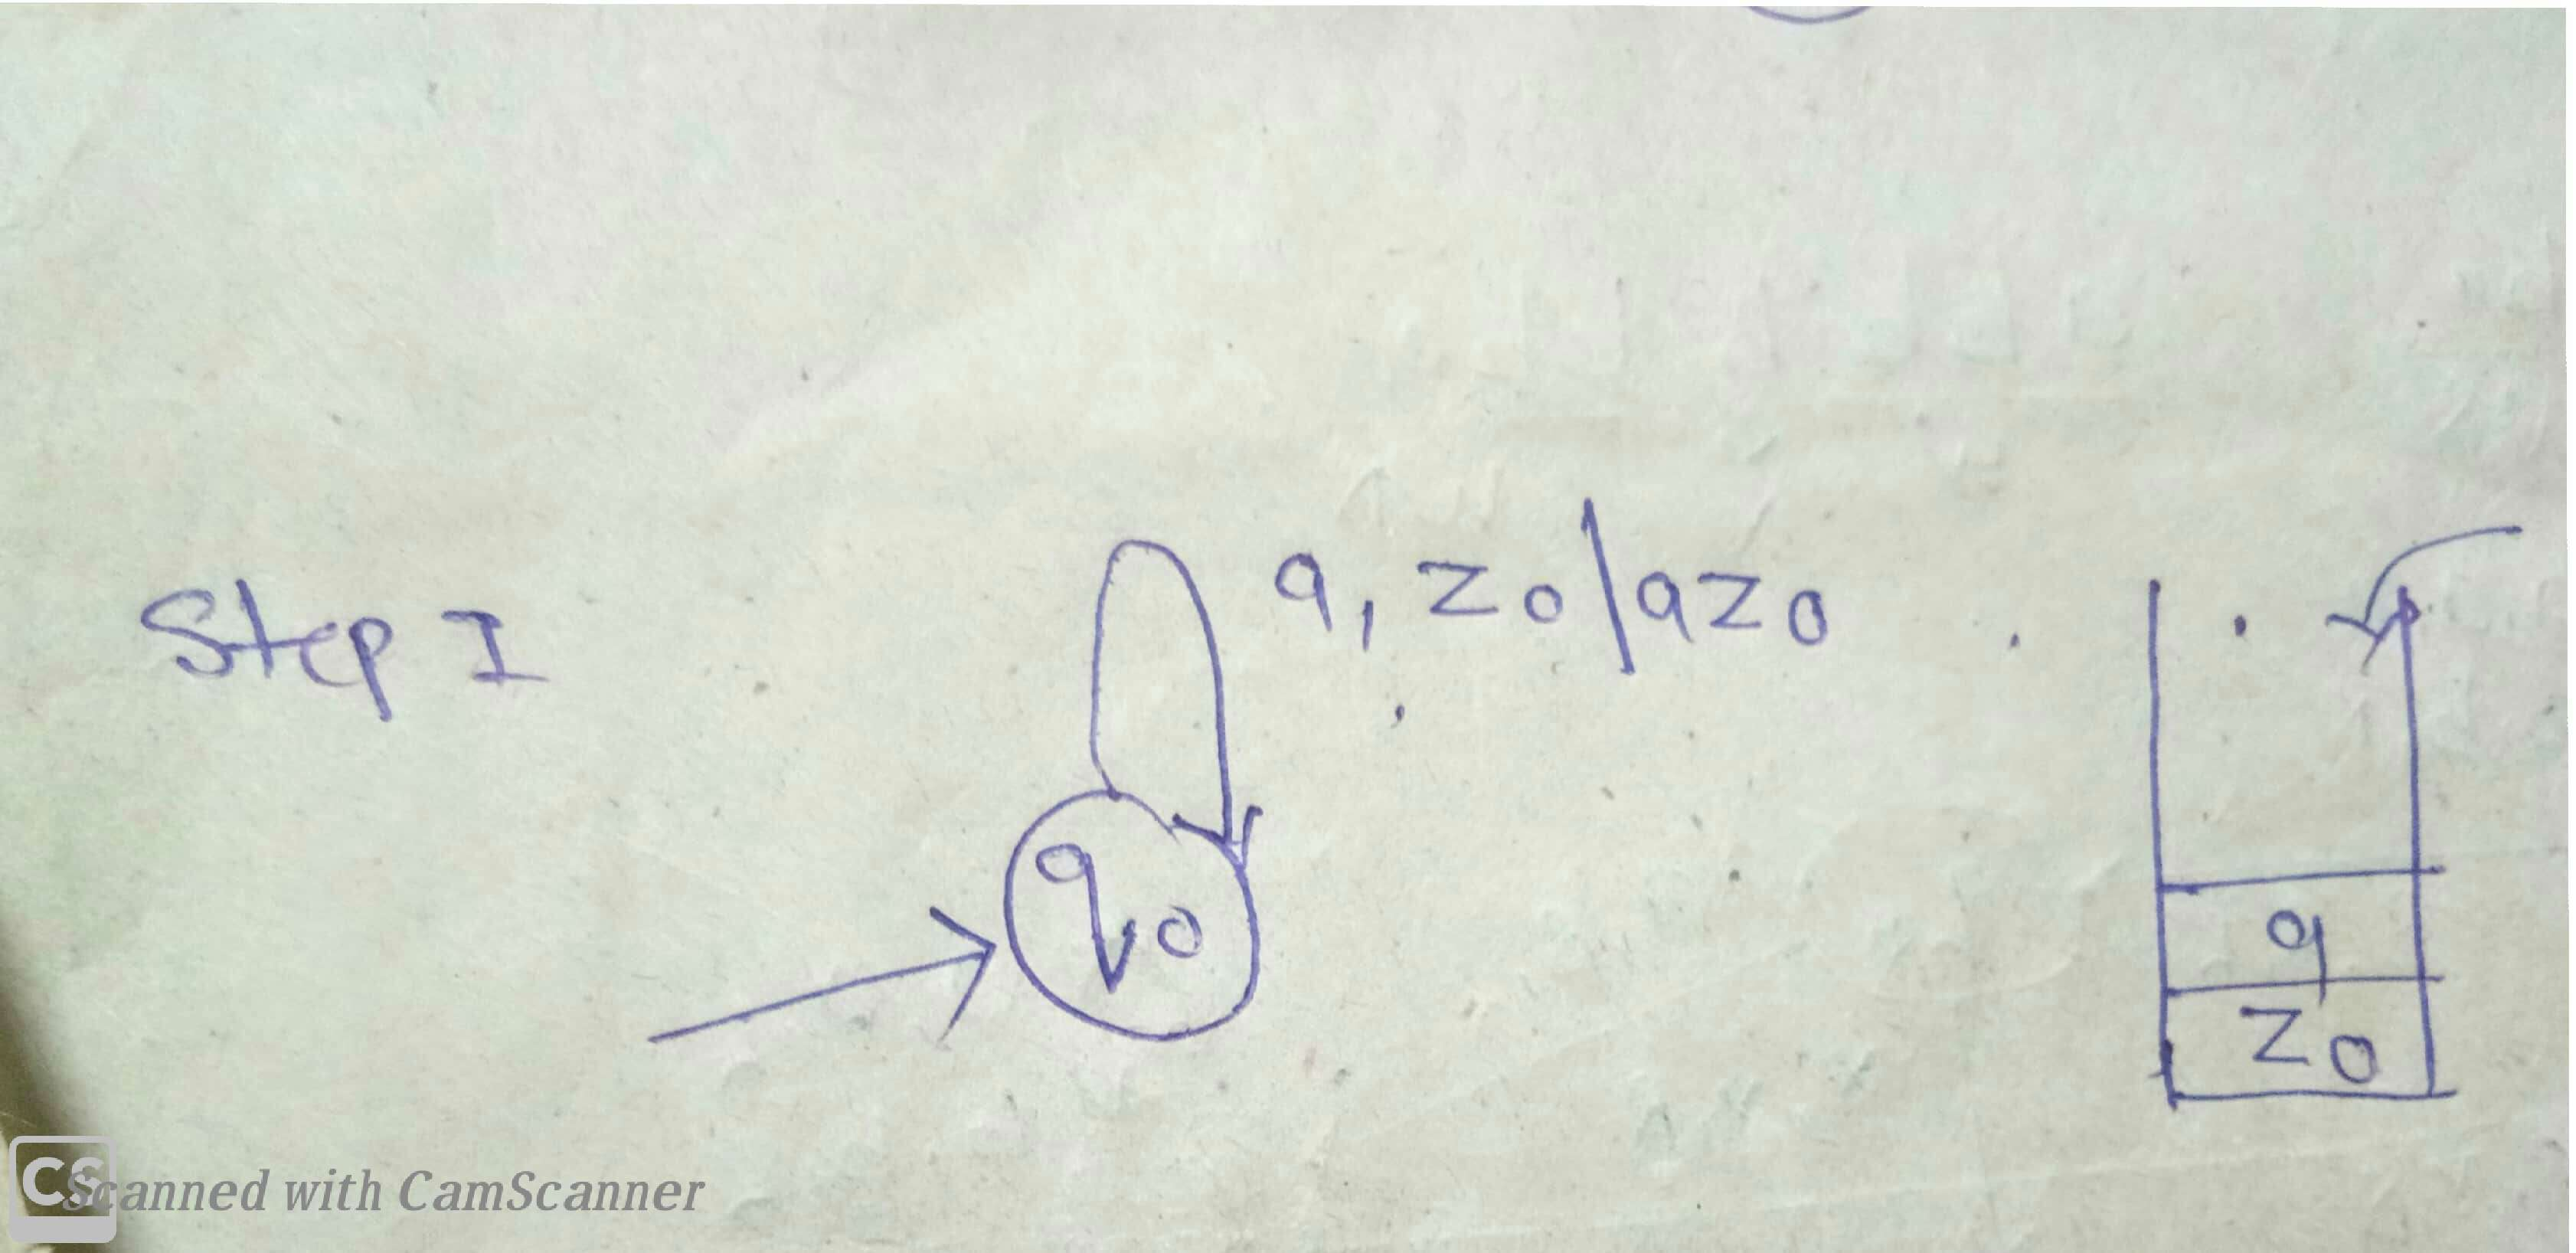 Step I
a, z0/az0
q0
a
z0
CS Scanned with CamScanner